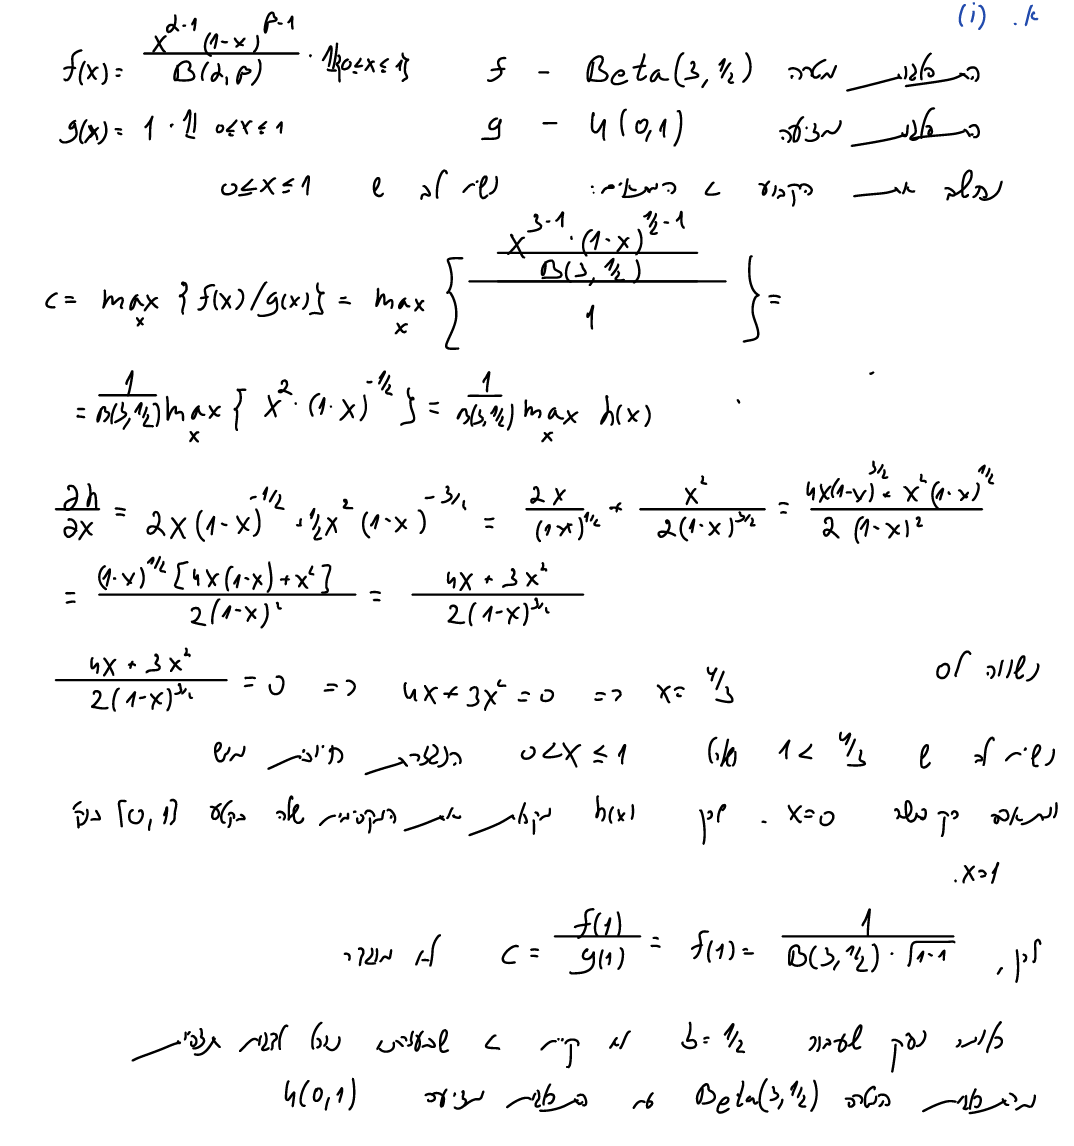 א. (i)
התפלגות מטרה f - Beta(3, 1/2) f(x) = x^{α-1} (1-x)^{β-1} / B(α, β) · 𝟙{0≤x≤1}
התפלגות מציעה g - U(0,1) g(x) = 1 · 𝟙 0≤x≤1
נחשב את הקבוע c המתאים: נשים לב ש 0≤x≤1
c = max_x {f(x)/g(x)} = max_x { (x^{3-1} · (1-x)^{1/2-1} / B(3, 1/2)) / 1 } =
= 1/B(3,1/2) max_x { x^2 · (1-x)^{-1/2} } = 1/B(3,1/2) max_x h(x)
∂h/∂x = 2x(1-x)^{-1/2} + 1/2 x^2 (1-x)^{-3/2} = 2x/(1-x)^{1/2} + x^2/2(1-x)^{3/2} = 4x(1-x)^{3/2} + x^2(1-x)^{1/2} / 2(1-x)^2
= (1-x)^{1/2} [4x(1-x)+x^2] / 2(1-x)^2 = 4x + 3x^2 / 2(1-x)^{3/2}
נשווה ל0 4x + 3x^2 / 2(1-x)^{3/2} = 0 => 4x + 3x^2 = 0 => x = 4/3
נשים לב ש 4/3 > 1 ואילו 0<x≤1 הנגזרת חיובית ממש
ומתאפס רק כאשר x=0. לכן h(x) מקבלת את המקסימום שלה בקטע [0,1] בנק'
x=1.
לכן, c = f(1)/g(1) = f(1) = 1 / B(3, 1/2) · √1-1 לא מוגדר
כלומר נסיק שעבור b = 1/2 לא קיים c שבעזרתו נוכל לדגום תצפיות
מהתפלגות המטרה Beta(3, 1/2) עם התפלגות מציעה U(0,1)